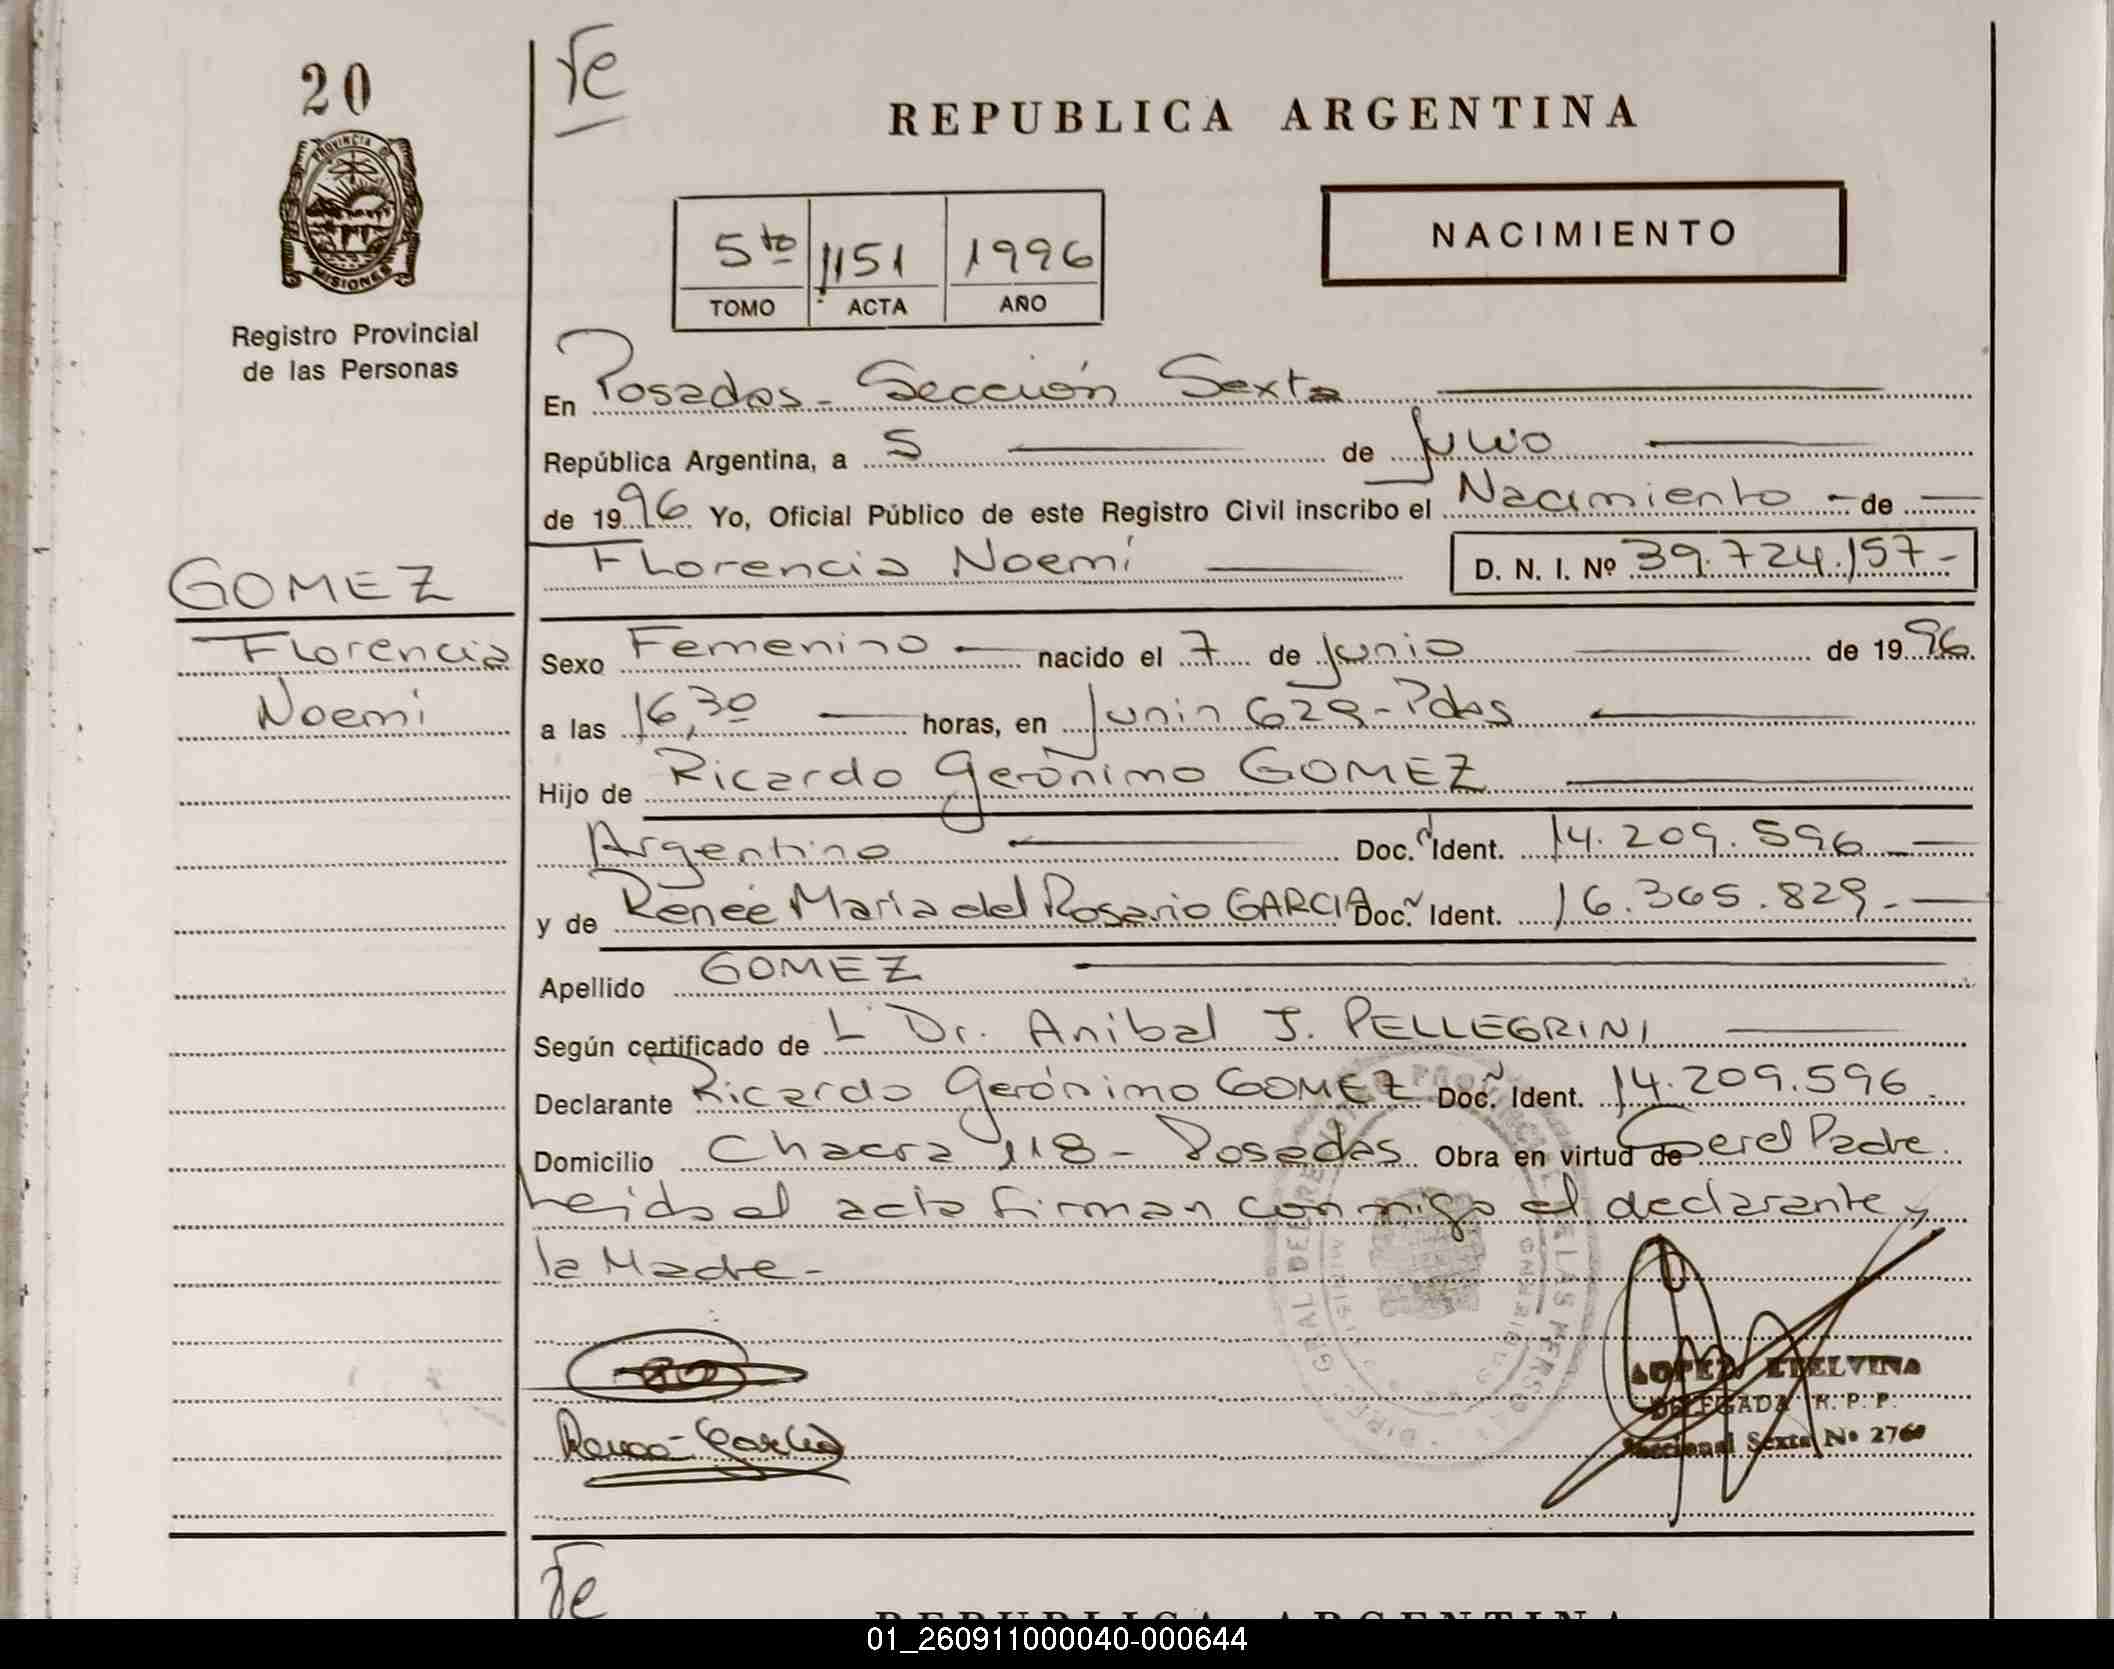 20
Fe
REPUBLICA ARGENTINA
PROVINCIA DE
MISIONES
Registro Provincial
de las Personas
5to 1151 1996
TOMO ACTA AÑO
NACIMIENTO
En Posadas - Sección Sexta
República Argentina, a 5 de Julio
de 1996 Yo, Oficial Público de este Registro Civil inscribo el Nacimiento - de
Florencia Noemí D. N. I. Nº 39.724.157-
GOMEZ
Florencia
Noemí
Sexo Femenino nacido el 7 de Junio de 1996.
a las 16,30 horas, en Junín 629 - Pdas
Hijo de Ricardo Gerónimo GOMEZ
Argentino Doc. Ident. 14.209.596
y de Reneé María del Rosario GARCIA Doc. Ident. 16.365.829.-
Apellido GOMEZ
Según certificado de L Dr. Anibal J. PELLEGRINI
Declarante Ricardo Gerónimo GOMEZ Doc. Ident. 14.209.596.
Domicilio Chacra 118 - Posadas Obra en virtud de Ser el Padre.
Leida el acta firman conmigo el declarante y
la Madre -
LOPEZ ETELVINA
DELEGADA R. P. P.
Seccional Sexta Nº 2760
Fe
REPUBLICA ARGENTINA
01_260911000040-000644